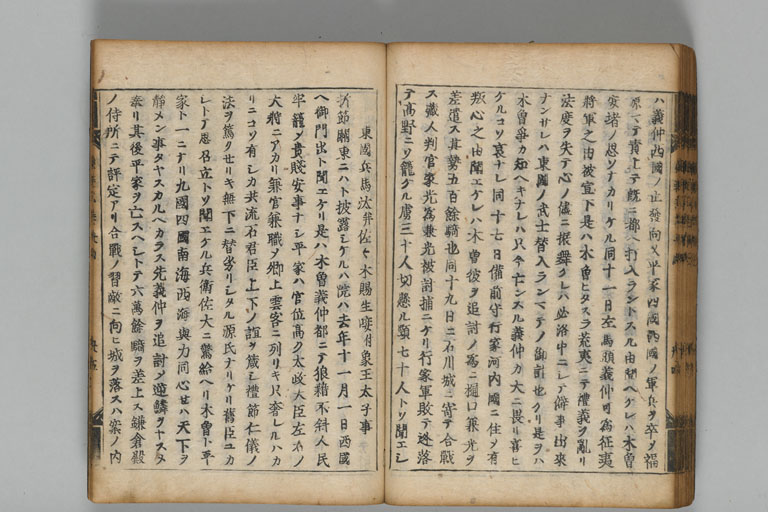 ハ義仲西國ノ止發向又平家四國西國ノ軍兵ヲ卒メ福
原マテ責上テ既ニ都ヘ打入ラントスル由聞ヘケレハ木曽
安堵ノ思ソナカリケル同十一日左馬頭義仲可為征夷
將軍之由被宣下是ハ木曽ヒタスラ荒夷ニテ礼義ヲ乱リ
法度ヲ失テ心ノ儘ニ振舞ケレハ必洛中ニシテ僻事出來
ナンサレハ東國ノ武士替入ランマテノ御計也ケリ是ヲハ
木曽爭カ知ヘキナレハ只今亡ンスル義仲カ大ニ畏リ喜ヒ
ケルコソ哀ナレ同十七日備前守行家河内國ニ住メ有
叛心之由聞エケレハ木曽彼ヲ追討ノ為ニ樋口兼光ヲ
差遣ス其勢五百餘騎也同十九日ニ石川城ニ寄テ合戰
ス蔵人判官家光為兼光被討捕ニケリ行家軍敗テ迯落
テ高野ニソ篭ケル虜三十人切懸ル頸七十人トソ聞エシ
東國兵馬汰并佐々木賜生唼付象王太子事
折節關東ニハト披露シケルハ院ハ去年十一月一日西國
ヘ御門出ト聞エケリ是ハ木曽義仲都ニテ狼藉不斜人民
牢篭メ貴賤安事ナシ平家ハ官位高ク太政大臣左右ノ
大將ニアカリ兼官兼職メ卿上雲客ニ列リキ只奢レルハカ
リニコソ有シカ共流石君臣上下ノ誼ヲ箴シ禮節仁儀ノ
法ヲ篤クセリキ無下ニ替劣リシタル源氏ナリケリ舊臣ユカ
レトテ思召立トソ聞エケル兵衛佐大ニ驚給ヘリ木曽ト平
家ト一ニナリ九國四國南海西海與力同心セハ天下ヲ
靜メン事タヤスカルヘカラス先義仲ヲ追討メ逆鱗ヲヤスメ
奉リ其後平家ヲ亡スヘシトテ六萬餘騎ヲ差上ス鎌倉殿
ノ侍所ニテ評定アリ合戰ノ習敵ニ向ヒ城ヲ落スハ案ノ内